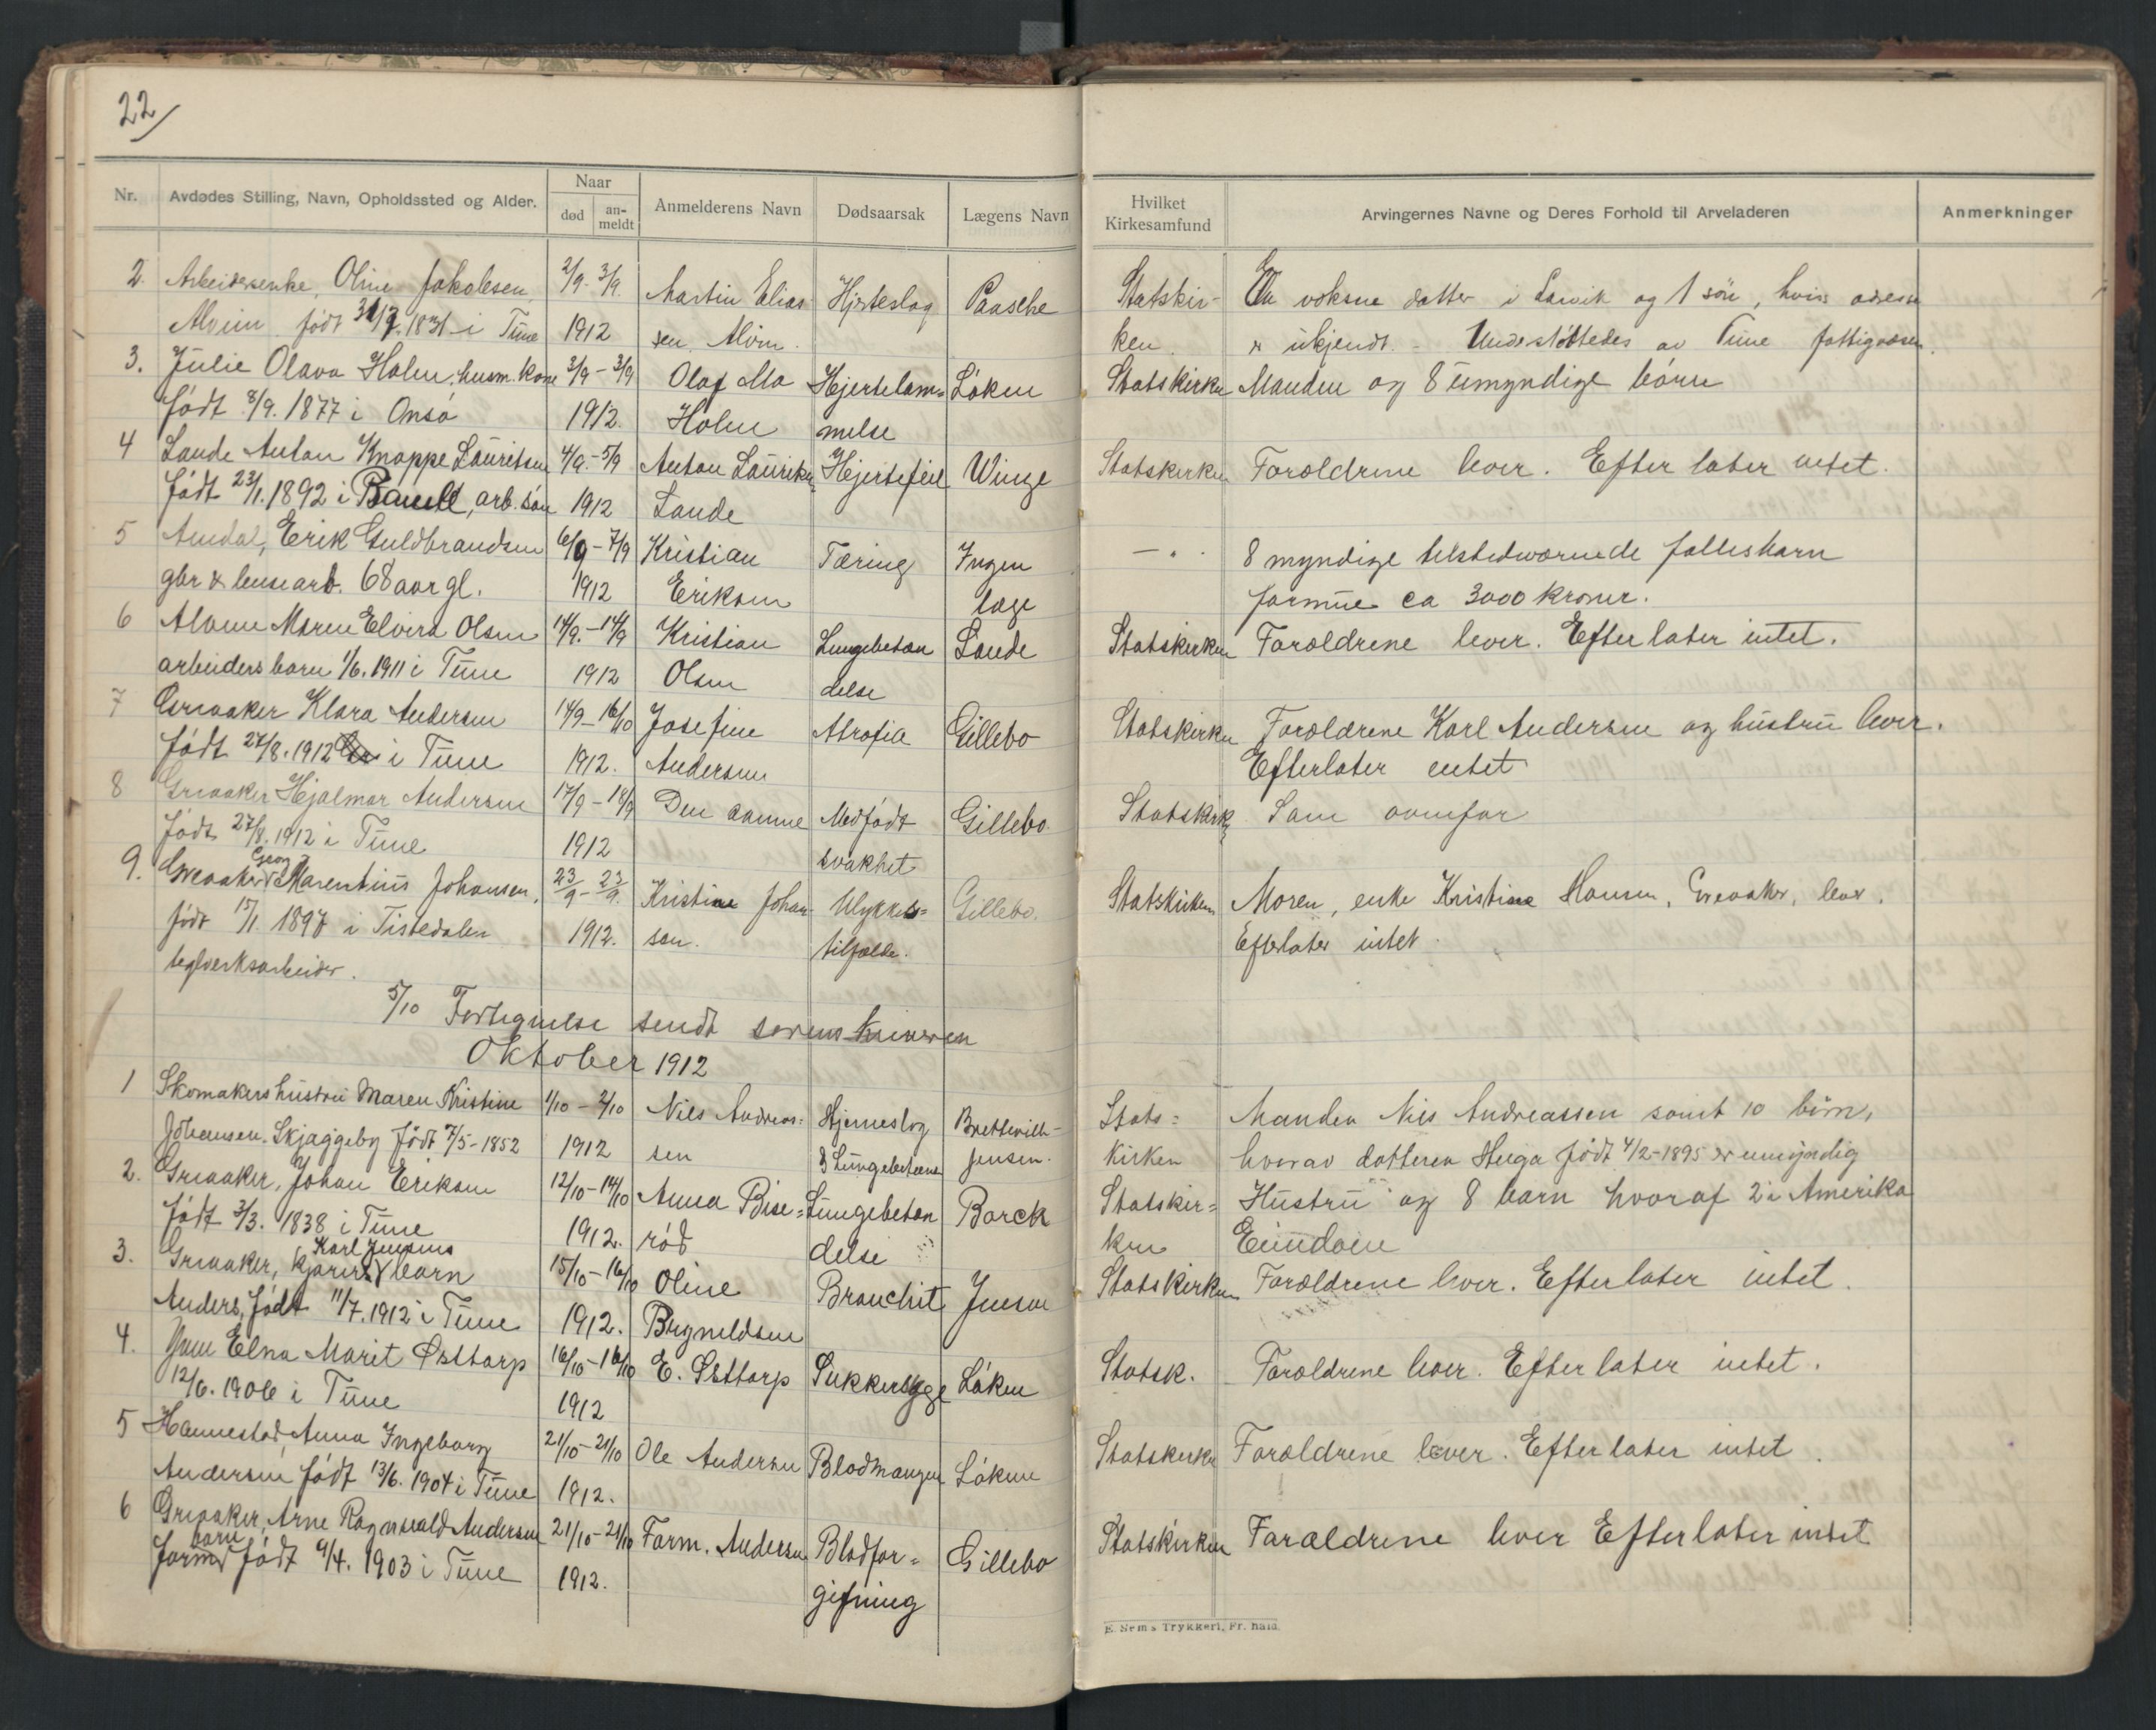 22
Nr.
Avdødes Stilling, Navn, Opholdssted og Alder.
Naar
død
an-
meldt
Anmelderens Navn
Dødsaarsak
Lægens Navn
Hvilket
Kirkesamfund
Arvingernes Navne og Deres Forhold til Arveladeren
Anmerkninger
2. Arbeiderenke, Oline Jakobsen, 2/9. 3/9. Martin Elias- Hjerteslag Paasche Statskir- En voksne datter i Larvik og 1 søn, hvis adresse
Alvim født 1831 i Tune 1912 sen Alvim. ken. er ukjendt. - Understøttedes av Tune fattigvæsen.
3. Julie Olava Holm, husm. kone 3/9 - 3/9 Olaf Ma Hjertelam= Løken Statskirken Manden og 8 umyndige børn
født 8/9. 1877 i Onsø 1912. Holm melse
4 Lande Anton Knappe Lauritsen 4/9. - 5/9 Anton Lauritsen Hjertefeil Winge Statskirken Forældrene lever. Efterlater intet.
født 23/1. 1892 i arb. søn 1912 Lande
5 Amdal, Erik Guldbrandsen 6/9 - 7/9 Kristian Tæring Ingen - " - 8 myndige tilstedeværende fællesbarn
gbr & lensearb. 68 aar gl. 1912 Eriksen læge formue ca 3000 kroner.
6 Alvim Maren Elvira Olsen 14/9. - 14/9 Kristian Lungebetæn Lande Statskirken Forældrene lever. Efterlater intet.
arbeiders barn 1/6. 1911 i Tune 1912 Olsen delse
7 Greaaker Klara Andersen 14/9 - 16/10 Josefine Atrofia Gillebo Statskirken Forældrene Karl Andersen og hustru lever.
født 27/8. 1912 i Tune 1912. Andersen Efterlater intet
8 Greaaker Hjalmar Andersen 17/9 - 18/9 Den samme Medfødt Gillebo Statskirk Som ovenfor
født 27/8. 1912 i Tune 1912 svakhet
Georg
9. Greaaker Marentius Johansen, 23/9 - 23/9. Kristine Johan- Ulykkes= Gillebo. Statskirken Moren, enke Kristine Hansen, Greaaker, lever.
født 15/1. 1897 i Tistedalen 1912. sen. tilfælde. Efterlater intet.
teglverksarbeider.
5/10 Fortegnelse sendt sorenskriveren
Oktober 1912
1 Skomakers hustru Maren Kristine 1/10 - 2/10 Niels Andreas= Hjerneslag Brettevill- Stats= Manden Nils Andreassen samt 10 børn,
Johansen. Skjæggeby født 7/5 - 1852 1912 sen & Lungebetæn Jensen. Kirken hvorav datteren Huga født 4/2 - 1895 er umyndig
2. Greaaker, Johan Eriksen 12/10 - 14/10 Anna Bise= Lungebetæn Borch Statskir= Hustru og 8 barn hvoraf 2 i Amerika
født 3/3. 1838 i Tune 1912. rød delse ken Eiendom
Karl Jensens
3. Greaaker, kjørers barn 15/10 - 16/10 Oline Bronchit Jensen Statskirken Forældrene lever. Efterlater intet.
Anders, født 11/7. 1912 i Tune 1912. Brynildsen
4. Elna Marit Østtorp 16/10 - 16/10 E. Østtorp Sukkersyge Løken Statsk. Forældrene lever. Efterlater intet.
12/6. 1906 i Tune 1912
5 Hannestad, Anna Ingeborg 21/10 - 21/10 Ole Andersen Blodmangel Løken Statskirken Forældrene lever. Efterlater intet
Andersen født 13/6. 1904 i Tune 1912.
6 Greaaker, Arne Ragnvald Andersen 21/10 - 21/10 Form. Andersen Blodfor= Gillebo Statskirken Forældrene lever Efterlater intet
barn
form. født 9/4. 1903 i Tune 1912. giftning
E. Sems Trykkeri, Fr.hald.